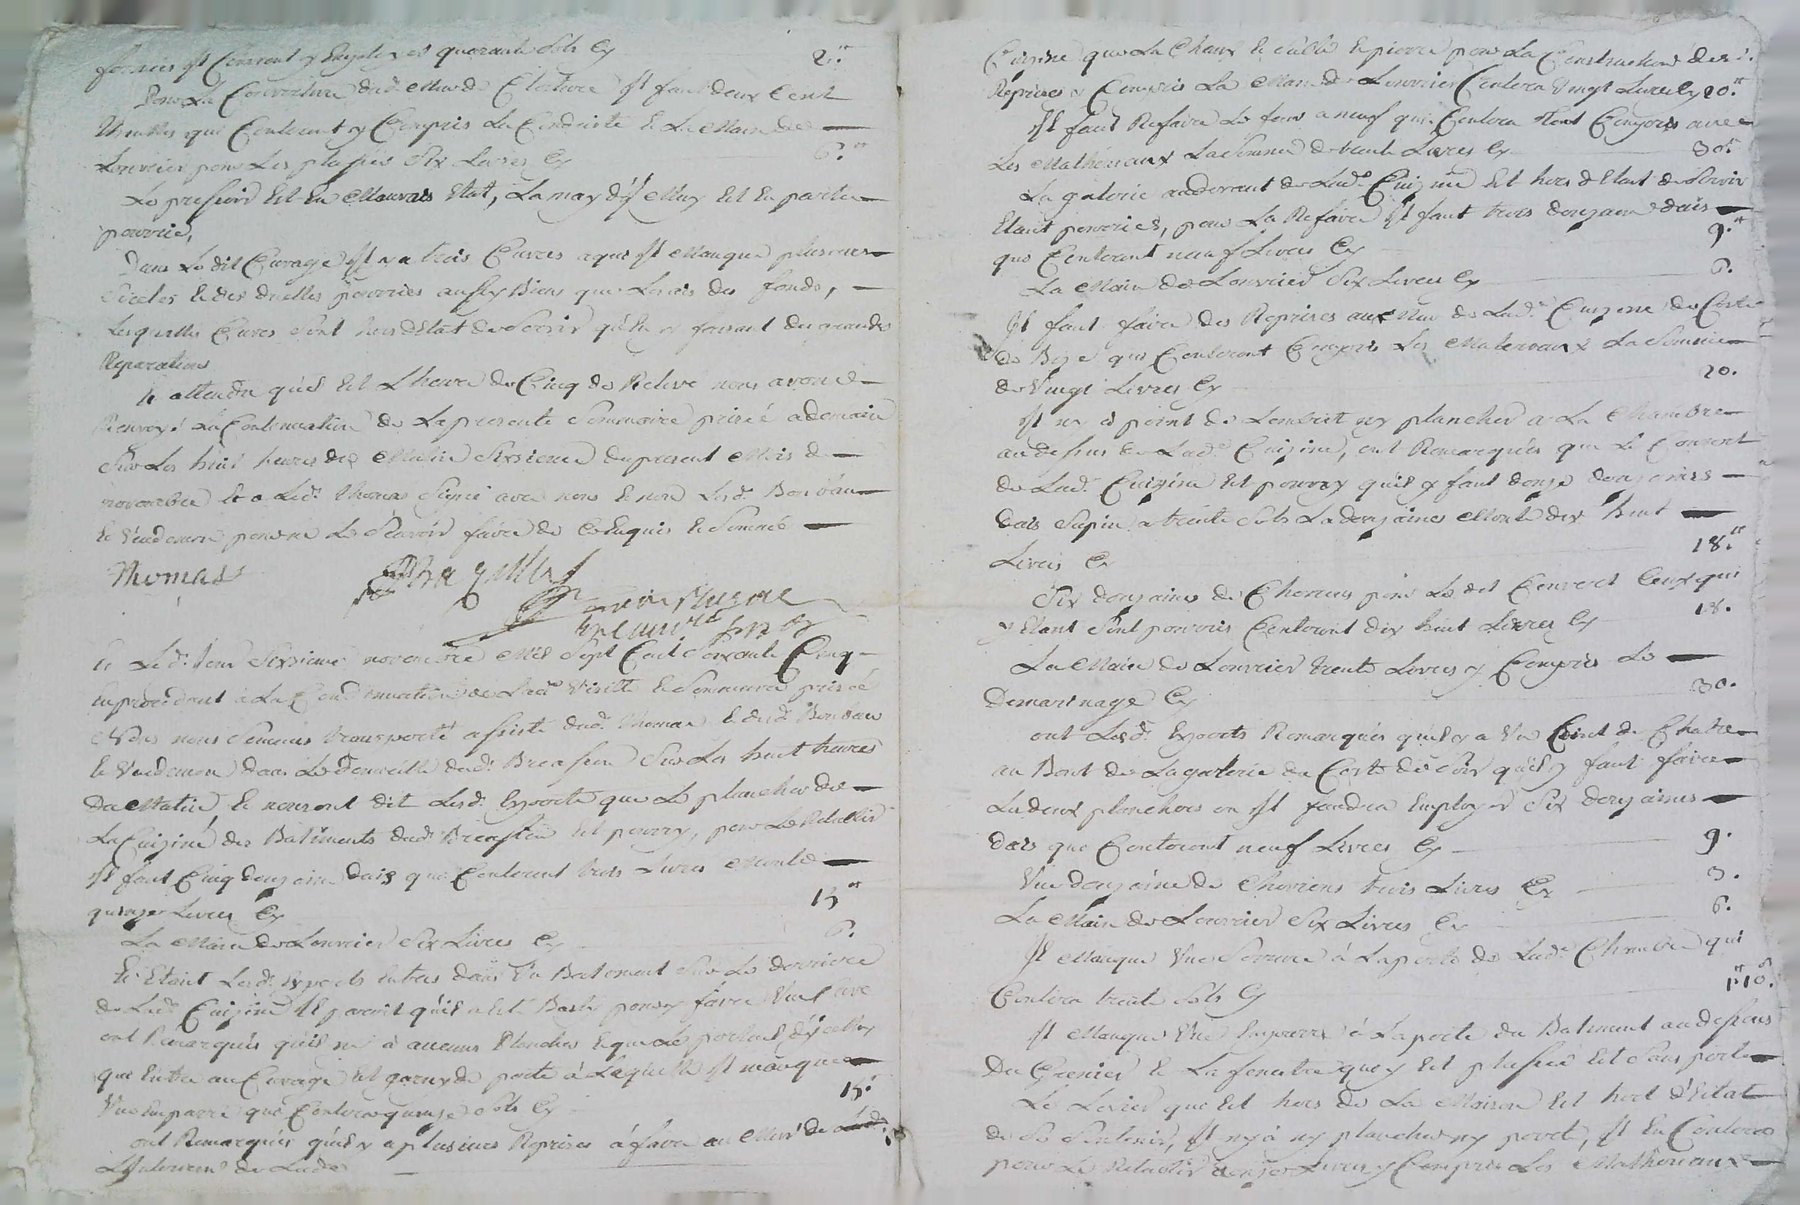 fournir Il Convient y Employer quarante sols Cy 2.tt
Pour La Couverture dud. Mur de Cloture Il faut deux Cent
thuilles qui Couteront y Compris La Conduite et La Main de
Louvrier pour Les placer Six Livres Cy 6.tt
Le pressoir Est en Mauvais Etat, La may d'y Est En partie
pourrie,
Dans Le dit Cuvage Il y a trois Cuves a qui Il Manque plusieurs
Cercles et des duelles pourries aussy Bien que Les ais des fonds,
Lesquelles Cuves Sont hors d'Etat de Servir qu'En y faisant de grandes
Reparations
Et attendu qu'il Est L'heure de Cinq de Releve nous avons
Renvoyé La Continuation de La presente Sommaire prisée a demain
Sur Les huit heures du Matin Sixieme du present Mois de
novembre Et a Led. Thomas Signé avec nous et non Lesd.
et pour ne Le Scavoir faire de Ce Enquis et Sommés
Thomas
Et Led. Jour Sixieme novembre Mil Sept Cent Soixante Cinq
En procedant à La Continuation de Lad. Visitte et Sommaire prisée
nous Sommes transporté assisté dud. Thomas et desd.
et dans Le Domicille dud. Sur Les huit heures
Du Matin, Et nous ont dit Lesd. Experts que Le plancher de
La Cuizine des Batiments dud. Est pourry, pour Le Rétablir
Il faut Cinq douzaine dais qui Couteront trois Livres Monte
quinze Livres Cy 15.tt
La Main de Louvrier Six Livres Cy 6.
Et Etant Lesd. Experts entrés dans Un Batiment Sur Le derriere
de Lad. Cuizine Il paroit qu'il a Eté Basti pour y faire Une
ont Remarqués qu'il ny à aucuns Planches et que Le portail
qui Entre au Cuvage Est garny de porte à Laquelle Il manque
Une Emparre qui Coutera quinze Sols Cy 15.s
ont Remarqués qu'il y a plusieurs Reprises à faire au Mur de
L'Interieur de Lade
Cuizine que La Chaux et Sable et pierre pour La Construction desd.
Reprises y Compris La Main de Louvrier Coutera Vingt Livres Cy 20.tt
Il faut Refaire Le four a neuf qui Coutera tout Compris avec
Les Mathériaux La Somme de trente Livres Cy 30.tt
La galerie audevant de Lade. Cuizine Est hors d'Etat de Servir
Etant pourries, pour La Refaire Il faut trois douzaine dais
qui Couteront neuf Livres Cy 9.tt
La Main de Louvrier Six Livres Cy 6.
Il faut faire des Reprises au Mur de Lad. Cuizine du Costé
de Bize qui Couteront Compris Les Materiaux La Somme
de Vingt Livres Cy 20.
Il ny à point de Lambrit ny plancher a La Chambre
au dessus de Lad. Cuizine, ont Remarqués que Le Couvert
de Lad. Cuizine Est pourry qu'il y faut douze douzaines
dais Sapin a trente Sols La douzaine Monte dix huit
Livres Cy 18.tt
Six douzaine de Chevrons pour Le dit Couvert Ceux qui
y Etant Sont pourris Couteront dix huit Livres Cy 18.
La Main de Louvrier trente Livres y Compris Le
Demarinage Cy 30.
ont Lesd. Experts Remarqués quil y a Un Coint de Chambre
au Bout de La galerie du Costé de soir qu'il y faut faire
Les deux planchers ou Il faudra Employer Six douzaines
dais qui Couteront neuf Livres Cy 9.
Une douzaine de Chevrons trois Livres Cy 3.
La Main de Louvrier Six Livres Cy 6.
Il Manque Une Serrure à La porte de Lad. Chambre qui
Coutera trente Sols Cy 1.tt 10.s
Il Manque Une Emparre à La porte du Batiment au dessous
Du Grenier Et La fenestre qui y Est placée Est Sans porte
Le Levier qui Est hors de La Maison Est hort d'Etat
de Se Soutenir, Il ny à ny plancher ny porte, Il En Coutera
pour Le Rétablir Livres y Compris Les Mathériaux